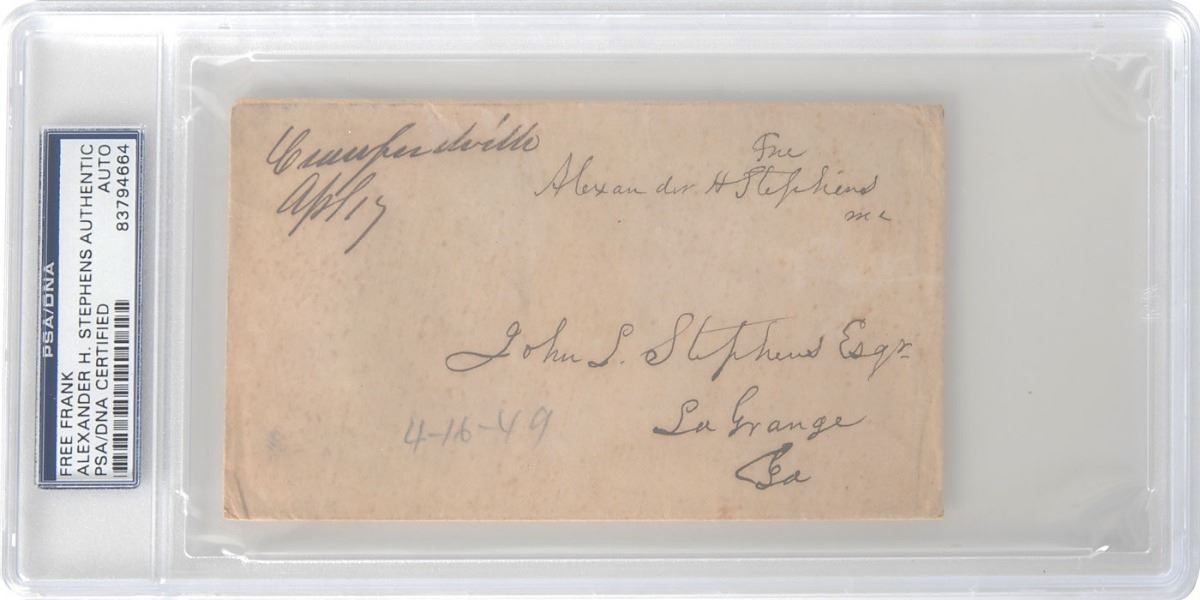 PSA/DNA
FREE FRANK
ALEXANDER H. STEPHENS AUTHENTIC
AUTO
PSA/DNA CERTIFIED
83794664
Crawfordville
Apl 17
Free
Alexander H Stephens
mc
John L. Stephens Esqr
La Grange
Ga
4-16-49